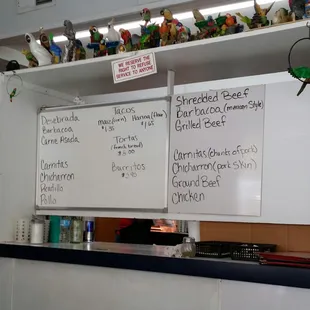 WE RESERVE THE
RIGHT TO REFUSE
SERVICE TO ANYONE
Desebrada
Barbacoa
Carne Asada
Carnitas
Chicharron
Pollo
Tacos
Maiz (corn) Harina (flour)
Tortas
(french bread)
Burritos
Shredded Beef
Barbacoa (mexican Style)
Grilled Beef
Carnitas (chunks of pork)
Chicharron (pork skin)
Ground Beef
Chicken